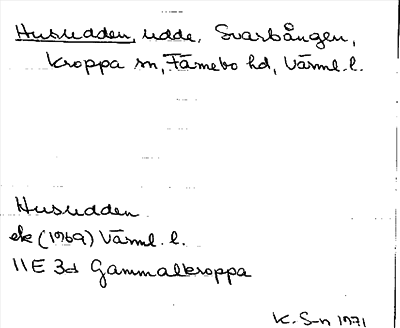 Husudden, udde, Svarbången,
Kroppa sn, Färnebo hd, Värml. l.
Husudden
ek (1969) Värml. l.
11E 3d Gammalkroppa
K. S-n 1971